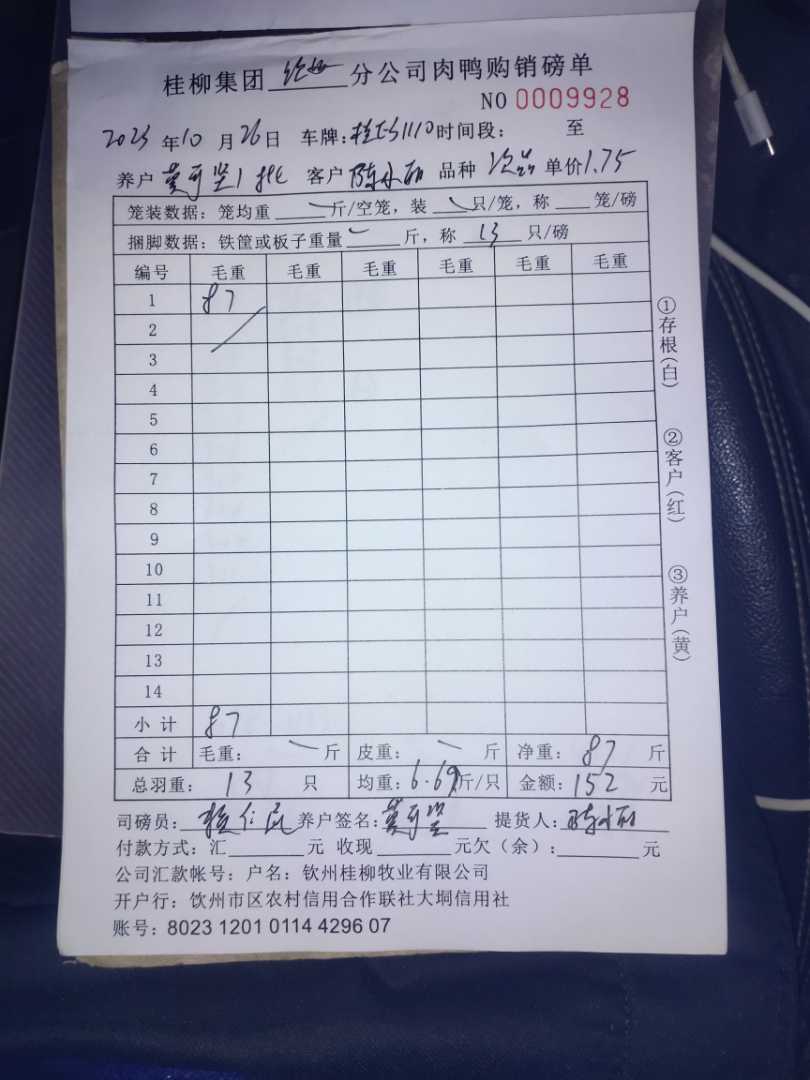 桂柳集团 分公司肉鸭购销磅单
NO 0009928
2023 年 10 月 26 日 车牌: 1110 时间段: 至
养户 客户 陈水丽 品种 次品 单价 1.75
笼装数据: 笼均重 斤/空笼, 装 只/笼, 称 笼/磅
捆脚数据: 铁筐或板子重量 斤, 称 13 只/磅
编号 毛重 毛重 毛重 毛重 毛重 毛重
1 87
2
3
4
5
6
7
8
9
10
11
12
13
14
小计 87
合计 毛重: 斤 皮重: 斤 净重: 87 斤
总羽重: 13 只 均重: 6.69 斤/只 金额: 152 元
司磅员: 养户签名: 提货人: 陈水丽
付款方式: 汇 元 收现 元欠(余): 元
公司汇款帐号: 户名: 钦州桂柳牧业有限公司
开户行: 饮州市区农村信用合作联社大垌信用社
账号: 8023 1201 0114 4296 07
①存根(白)
②客户(红)
③养户(黄)